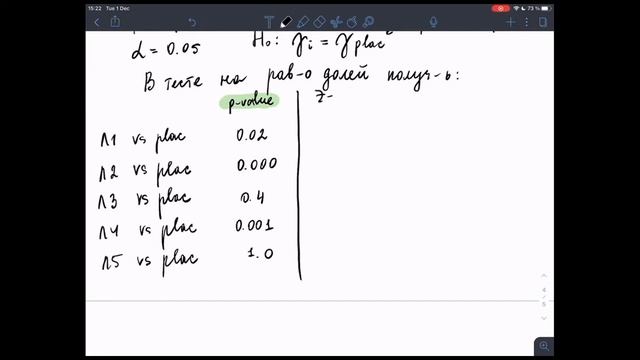 15:22 Tue 1 Dec
73 %
α = 0.05 H₀: γi = γplac
В тесте на рав-о долей получ-ь:
p-value z-
Л1 vs plac 0.02
Л2 vs plac 0.000
Л3 vs plac 0.4
Л4 vs plac 0.001
Л5 vs plac 1.0
4
5